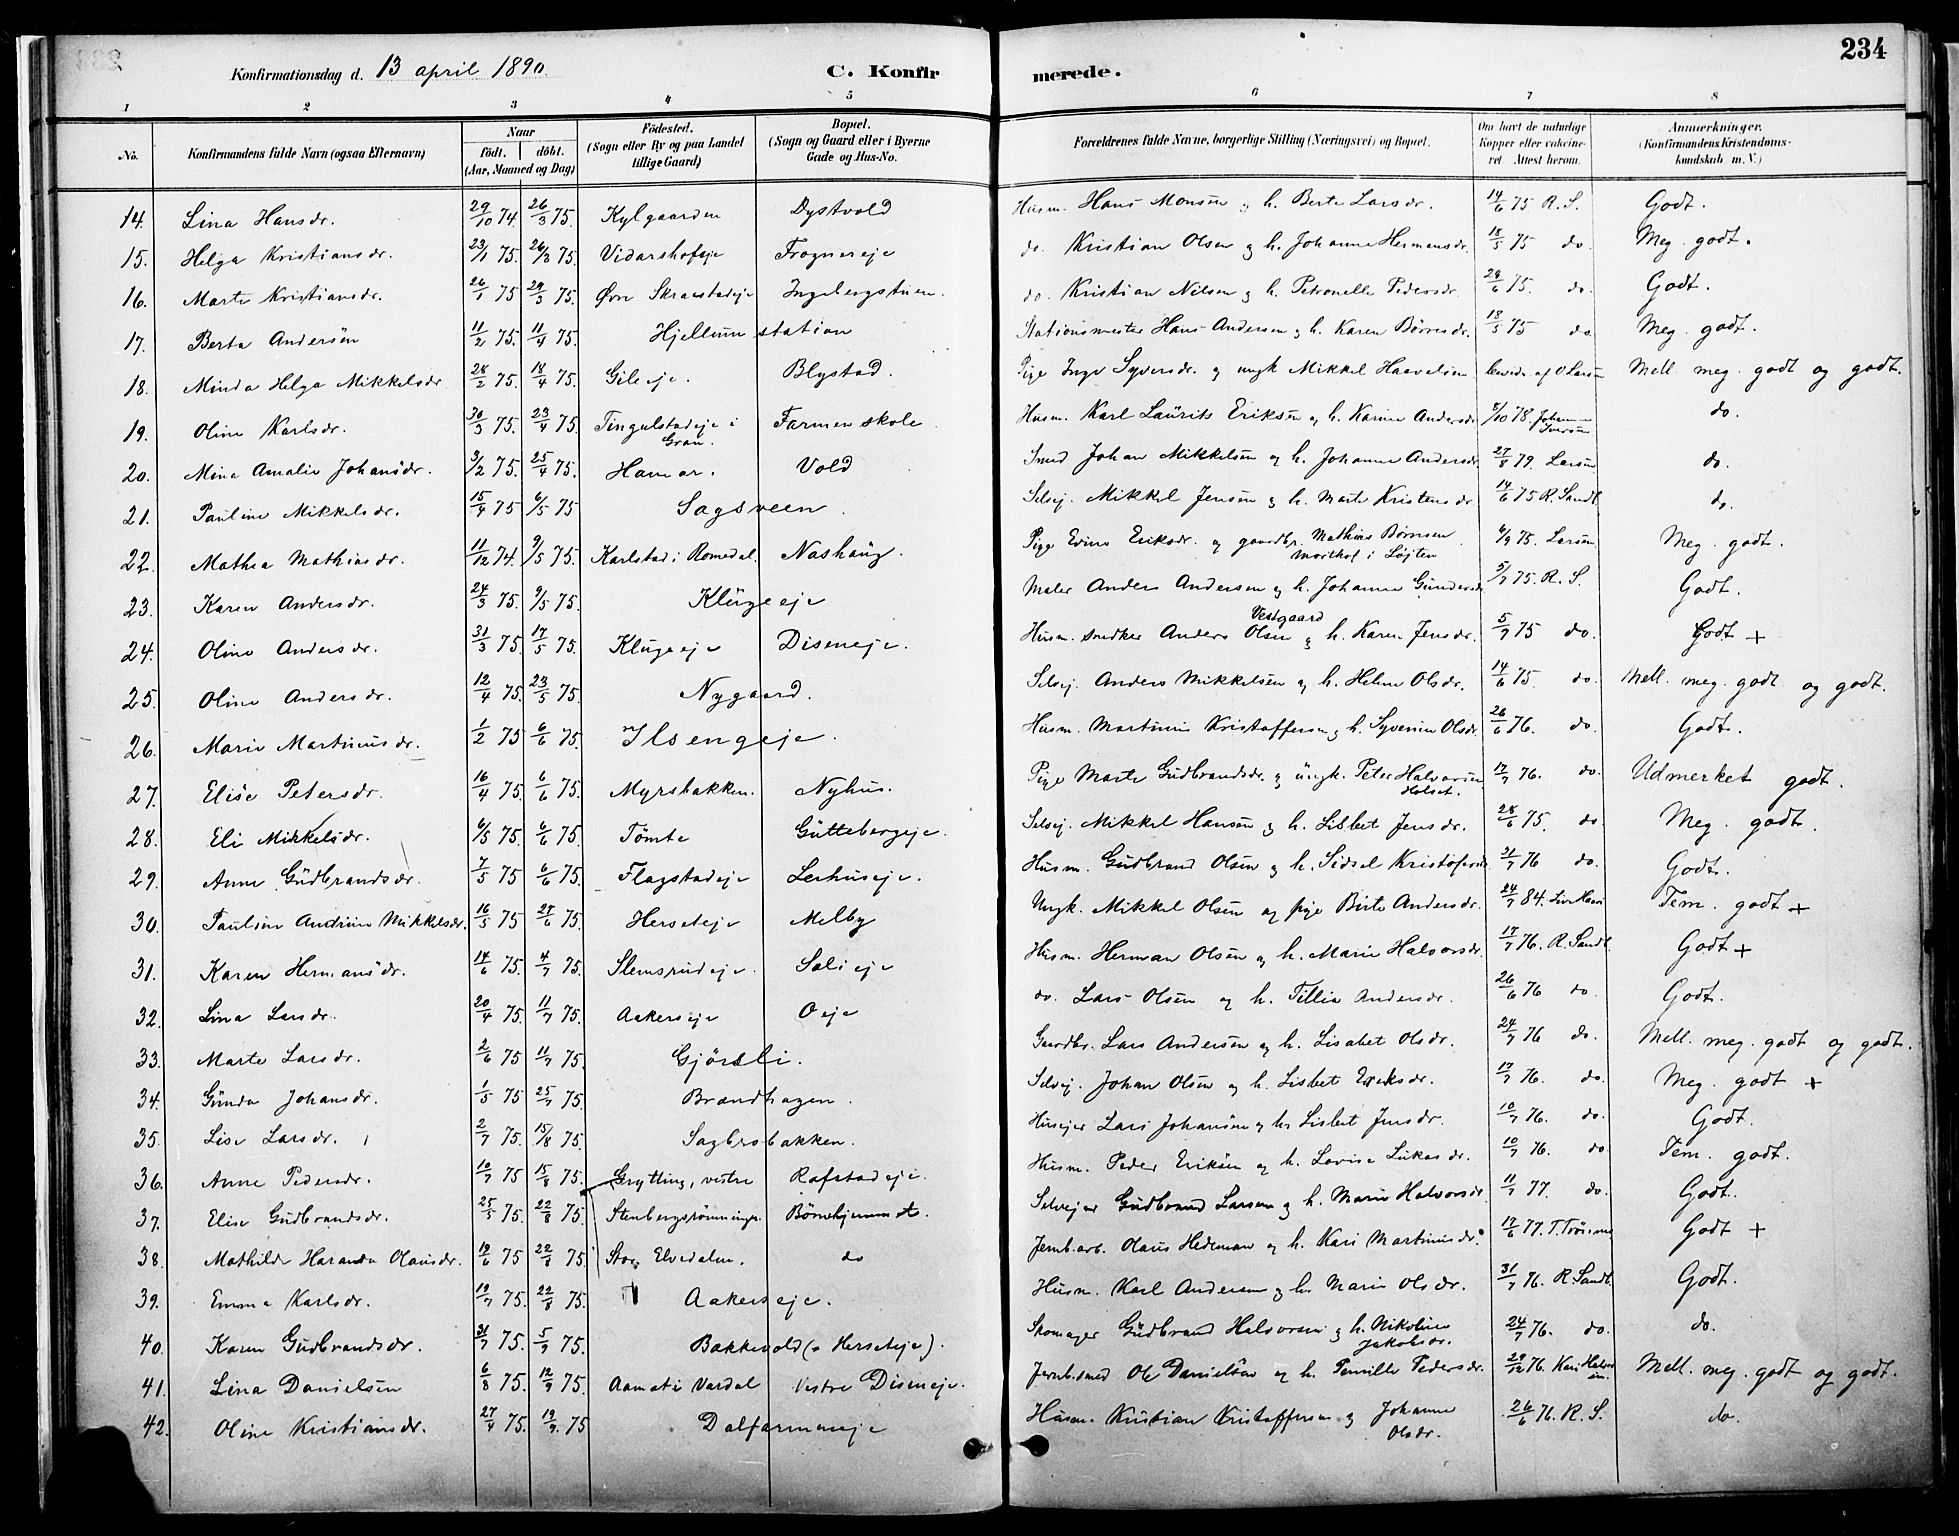 234
Konfirmationsdag d. 13 april 1890. C. Konfirmerede.
1 2 3 4 5 6 7 8
No. Konfirmandens fulde Navn (ogsaa Efternavn) Naar födt. döbt. (Aar, Maaned og Dag) Födested. (Sogn eller By og paa Landet tillige Gaard) Bopæl. (Sogn og Gaard eller i Byerne Gade og Hus-No. Forældrenes fulde Navne, borgerlige Stilling (Næringsvei) og Bopæl. Om havt de naturlige Kopper eller vakcineret Attest herom. Anmærkninger. (Konfirmandens Kristendomskundskab m. V.)
14. Lina Hansdr. 29/10 74 26/3 75. Kylgaarden Dystvold Husm. Hans Monsen og h. Berte Larsdr. 14/6 75 R. S. Godt.
15. Helga Kristiansdr. 23/1 75. 26/3 75. Vidarshofeje Frognereje do. Kristian Olsen og h. Johanne Hermansdr. 18/5 75 do. Meg. godt.
16. Marte Kristiansdr. 26/1 75 29/3 75. Øvre Skraastadeje Ingebergstuen. do. Kristian Nilsen og h. Petronelle Pedersdr. 24/6 75. do. Godt.
17. Berta Andersen 11/2 75. 11/4 75. Hjellum station Stationsmester Hans Andersen og h. Karen Børresdr. 18/5 75 do. Meg. godt.
18. Minda Helga Mikkelsdr. 28/2 75. 18/4 75. Gileeje. Blystad. Pige Inge Syversdr. og ungk Mikkel Haavelsen bevidn. af O Larsen Mell. meg. godt og godt.
19. Oline Karlsdr. 30/3 75. 23/4 75. Tingelstadeje i Gran. Farmen skole. Husm. Karl Laurits Eriksen og h. Karine Andersdr. 5/10 78. Johannes Iversen do.
20. Mina Amalie Johansdr. 3/2 75. 25/4 75. Hamar. Vold Smed Johan Mikkelsen og h. Johanne Andersdr. 27/8 79. Larsen do.
21. Pauline Mikkelsdr. 15/4 75 6/5 75 Sagsveen. Selvej. Mikkel Jensen og h. Marte Kristensdr. 14/6 75 R. Sandb. do.
22. Mathea Mathiasdr. 11/12 74. 9/5 75. Karlstad i Romedal Nashaug. Pige Evine Eriksdr. og gaardbr. Mathias Børresen Morthof i Løjten 6/9 75. Larsen Meg. godt.
23. Karen Andersdr. 24/3 75. 9/5 75. Klugeeje Maler Anders Andersen og h. Johanne Gundersdr. 5/7 75. R. S. Godt.
24. Oline Andersdr. 31/3 75. 17/5 75. Klugeeje Diseneje. Husm. snedker Anders Olsen Vestgaard og h. Karen Jensdr. 5/7 75 do. Godt +
25. Oline Andersdr. 12/4 75. 23/5 75. Nygaard. Selvej. Anders Mikkelsen og h. Helene Olsdr. 14/6 75. do. Mell. meg. godt og godt.
26. Marie Martinusdr. 1/2 75 6/6 75. Ilsengeje. Husm. Martinus Kristoffersen og h. Syverine Olsdr. 26/6 76. do. Godt.
27. Elise Petersdr. 16/4 75. 6/6 75. Myrsbakken. Nyhus. Pige Marte Gudbrandsdr. og ungk. Peter Halvorsen Holset. 17/7 76. do. Udmerket godt.
28. Eli Mikkelsdr. 6/5 75. 6/6 75. Tömte Güttebergeje. Selvej. Mikkel Hansen og h. Lisbet Jensdr. 28/6 75. do. Meg. godt.
29. Anne Gudbrandsdr. 7/5 75 6/6 75. Flagstadeje Lerhuseje. Husm. Gudbrand Olsen og h. Sidsel Kristofersdr. 31/7 76 do. Godt.
30. Pauline Andrine Mikkelsdr. 16/5 75 27/6 75. Herseteje Melby Ungk. Mikkel Olsen og pige Birte Andersdr. 24/7 84. Tem. godt +
31. Karen Hermansdr. 14/6 75. 4/7 75. Slemsrudeje. Solieje Husm. Herman Olsen og h. Marie Halvorsdr. 17/7 76. R. Sandb. Godt +
32. Lina Larsdr. 20/4 75. 11/7 75. Aakerseje Oeje do. Lars Olsen og h. Tillia Andersdr. 26/6 76 do. Godt.
33. Marte Larsdr. 2/6 75 11/7 75. Gjörsli. Gaardbr. Lars Andersen og h. Lisabet Olsdr. 24/7 76 do. Mell. meg. godt og godt.
34. Gunda Johansdr. 1/5 75 25/7 75. Brandhagen. Selvej. Johan Olsen og h. Lisbet Eriksdr. 17/7 76. do. Meg. godt +
35. Lise Larsdr. 2/7 75. 15/8 75. Sagbrobakken. Husejer Lars Johansen og h. Lisbet Jensdr. 10/7 76. do. Godt.
36. Anne Pedersdr. 10/7 75 15/8 75. Grytting, vestre Rafstadeje. Husm. Peder Eriksen og h. Lovise Lukasdr. 10/7 76. do. Tem. godt.
37. Elise Gudbrandsdr. 25/5 75. 22/8 75. Stenbergsrønningen Börnehjemmet. Selvejer Gudbrand Larsen og h. Marie Halvorsdr. 11/7 77. do. Godt.
38. Mathilde Haranda Olausdr. 12/6 75 22/8 75. Stor Elvedalen. do Jernb.arb. Olaus Hedeman og h. Kari Martinusdr. 17/6 77. Godt +
39. Emma Karlsdr. 19/7 75. 22/8 75. Aakerseje. Husm. Karl Andersen og h. Marie Olsdr. 31/7 76. R. Sandb. Godt.
40. Karen Gudbrandsdr. 31/7 75. 5/9 75. Bakkevold (Herseteje). Skomager Gudbrand Halvorsen og h. Nikoline Jakobsdr. 24/7 76. do. do.
41. Lina Danielsen 6/8 75. 12/9 75. Aamot i Vardal Vestre Diseneje. Jernb.smed Ole Danielsen og h. Pernille Pedersdr. 29/12 76. Kari Halvorsen. Mell. meg. godt og godt.
42. Oline Kristiansdr. 27/4 75. 19/9. 75 Dalfarmeneje Husm. Kristian Kristoffersen og Johanne Olsdr. 26/6 76. R. S. do.